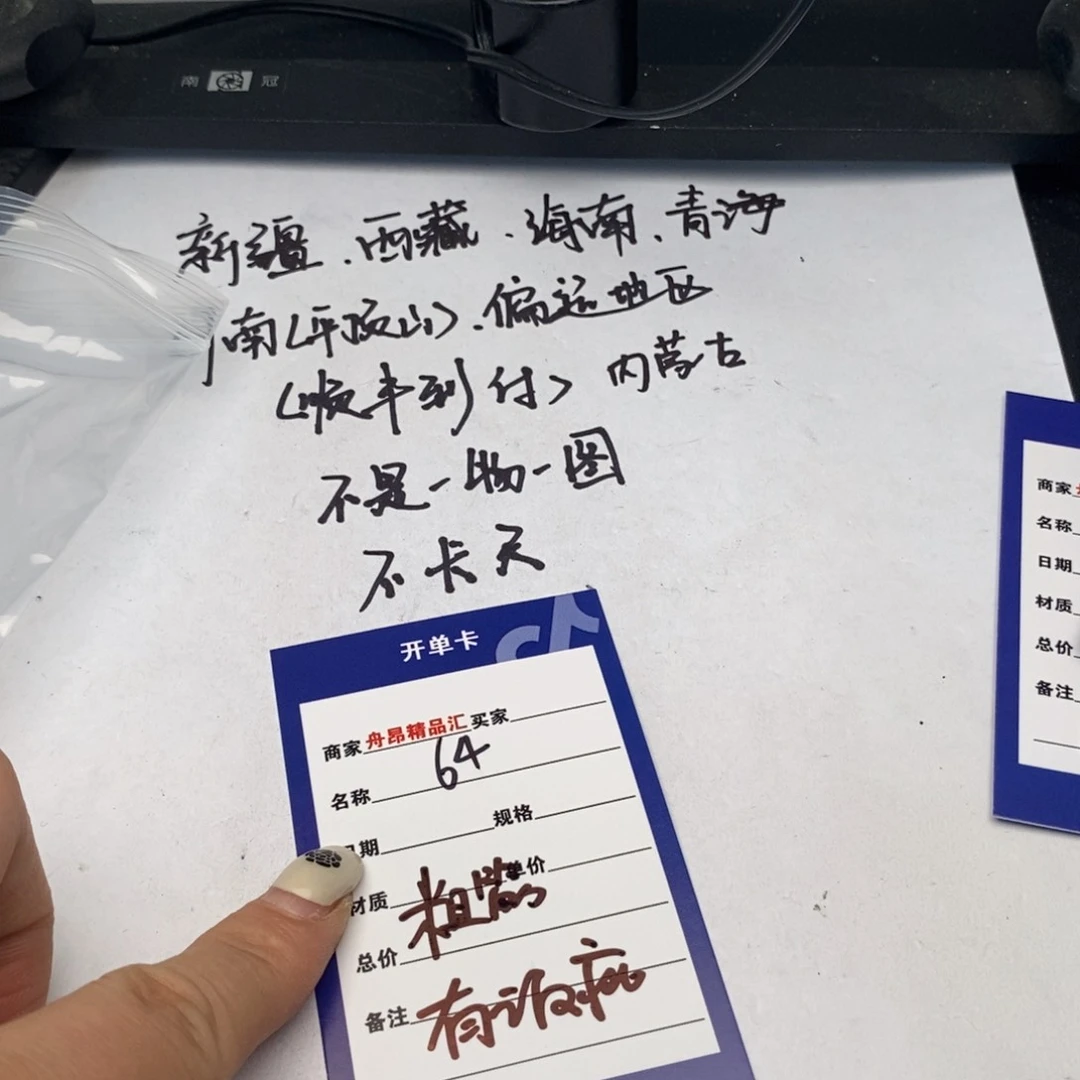 南 冠
新疆、西藏、海南、青海
南(平顶山)、偏远地区
(顺丰到付) 内蒙古
不是一物一图
不卡天
开单卡
商家 舟昂精品汇 买家
64
名称
日期 规格
材质 单价
总价
备注 有
商家
名称
日期
材质
总价
备注